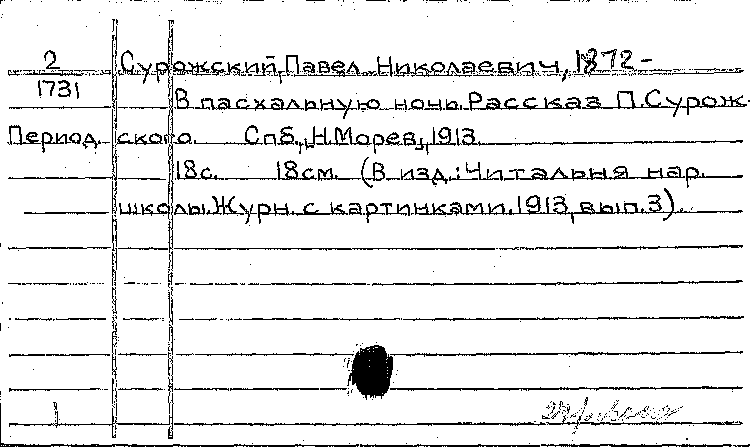 2 Сурожский, Павел Николаевич, 1872-
1731
В пасхальную ночь. Рассказ П. Сурож-
Период. ского. Спб., Н. Морев, 1913.
18с. 18см. (В изд.: Читальня нар.
школы. Журн. с картинками. 1913, вып. 3).
1